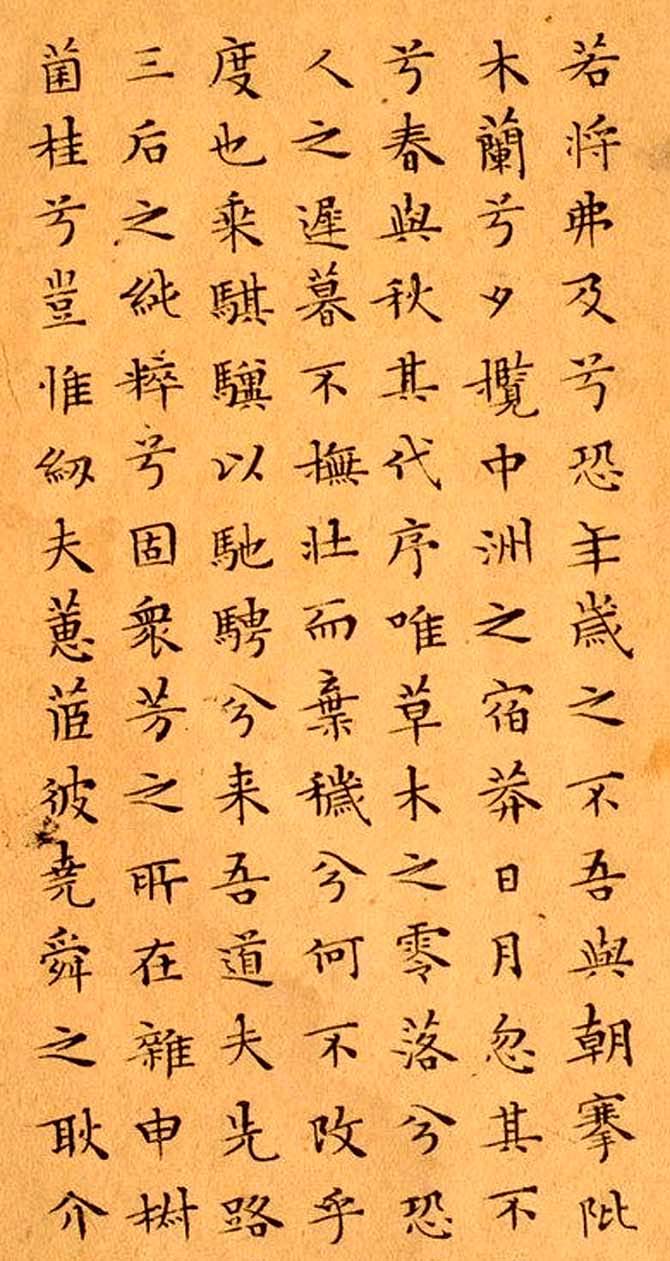 若将弗及兮恐年歲之不吾與朝搴阰
木蘭兮夕攬中洲之宿莽日月忽其不
兮春與秋其代序唯草木之零落兮恐
人之遲暮不撫壯而棄穢兮何不改乎
度也乘騏驥以馳騁兮来吾道夫先路
三后之純粹兮固衆芳之所在雜申椒
菌桂兮豈惟紉夫蕙茝彼堯舜之耿介